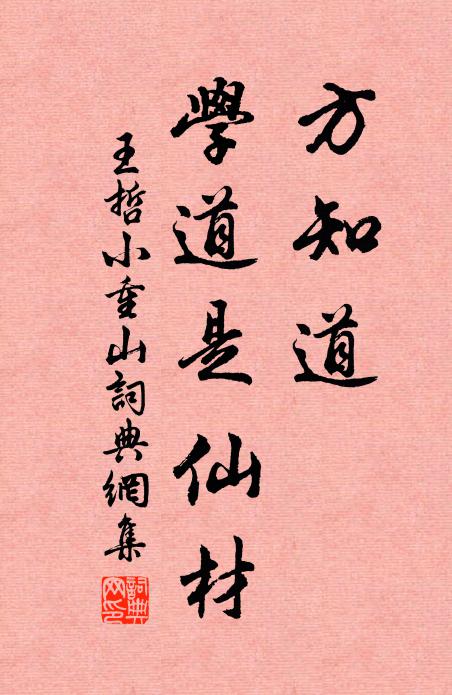 方知道
學道是仙材
王哲小重山詞典網集
詞典網印